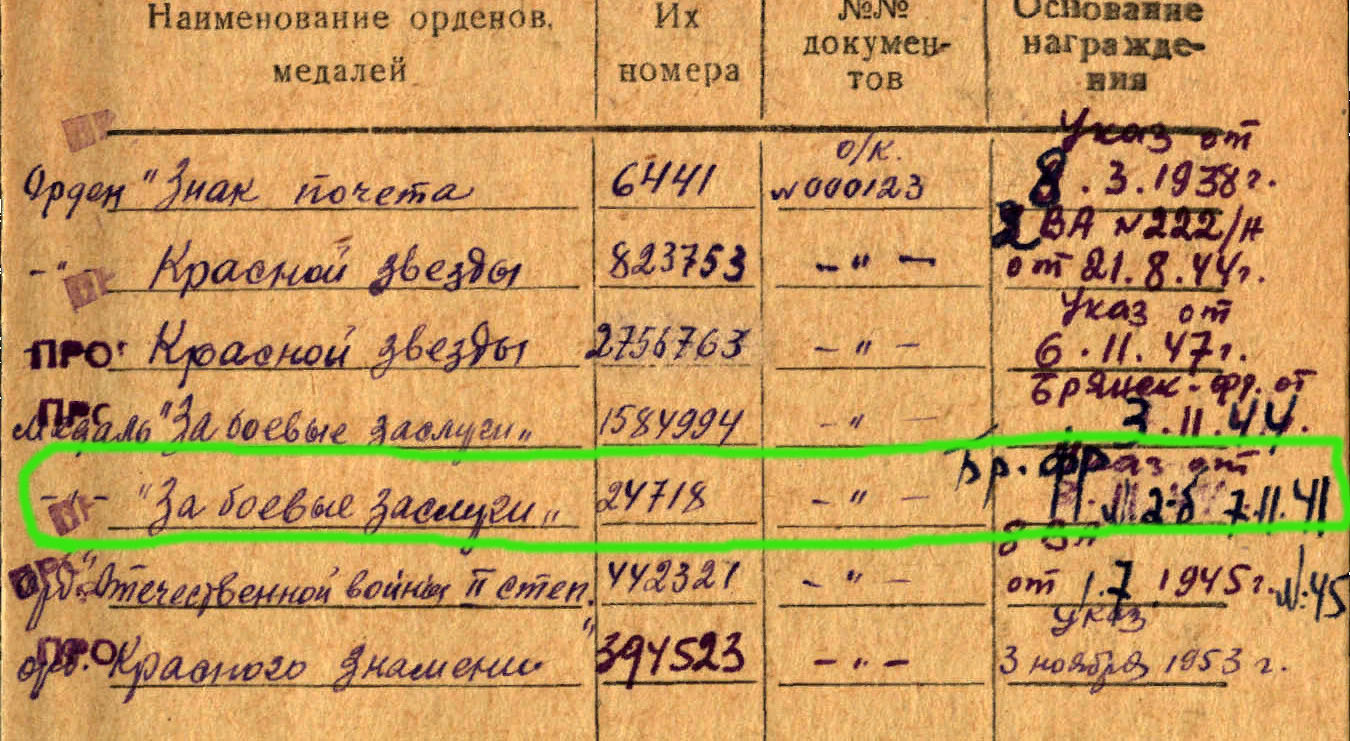 Наименование орденов, медалей
Их номера
№№ документов
Основание награждения
Орден "Знак почета 6441 о/к. №000123 Указ от 8.3.1938г.
-"- Красной звезды 823753 -"- 2 ВА №222/н от 21.8.44г.
ПРО Красной звезды 2756763 -"- Указ от 6.11.47г.
Медаль "За боевые заслуги" 1584994 -"- Брянск-фр. от 3.11.44.
-"- "За боевые заслуги" 24718 -"- Бр. фр 7.11.41
"Отечественной войны II степ." 442321 -"- от 1.7.1945г. №45
орд. Красного знамени 394523 -"- Указ 3 ноября 1953 г.